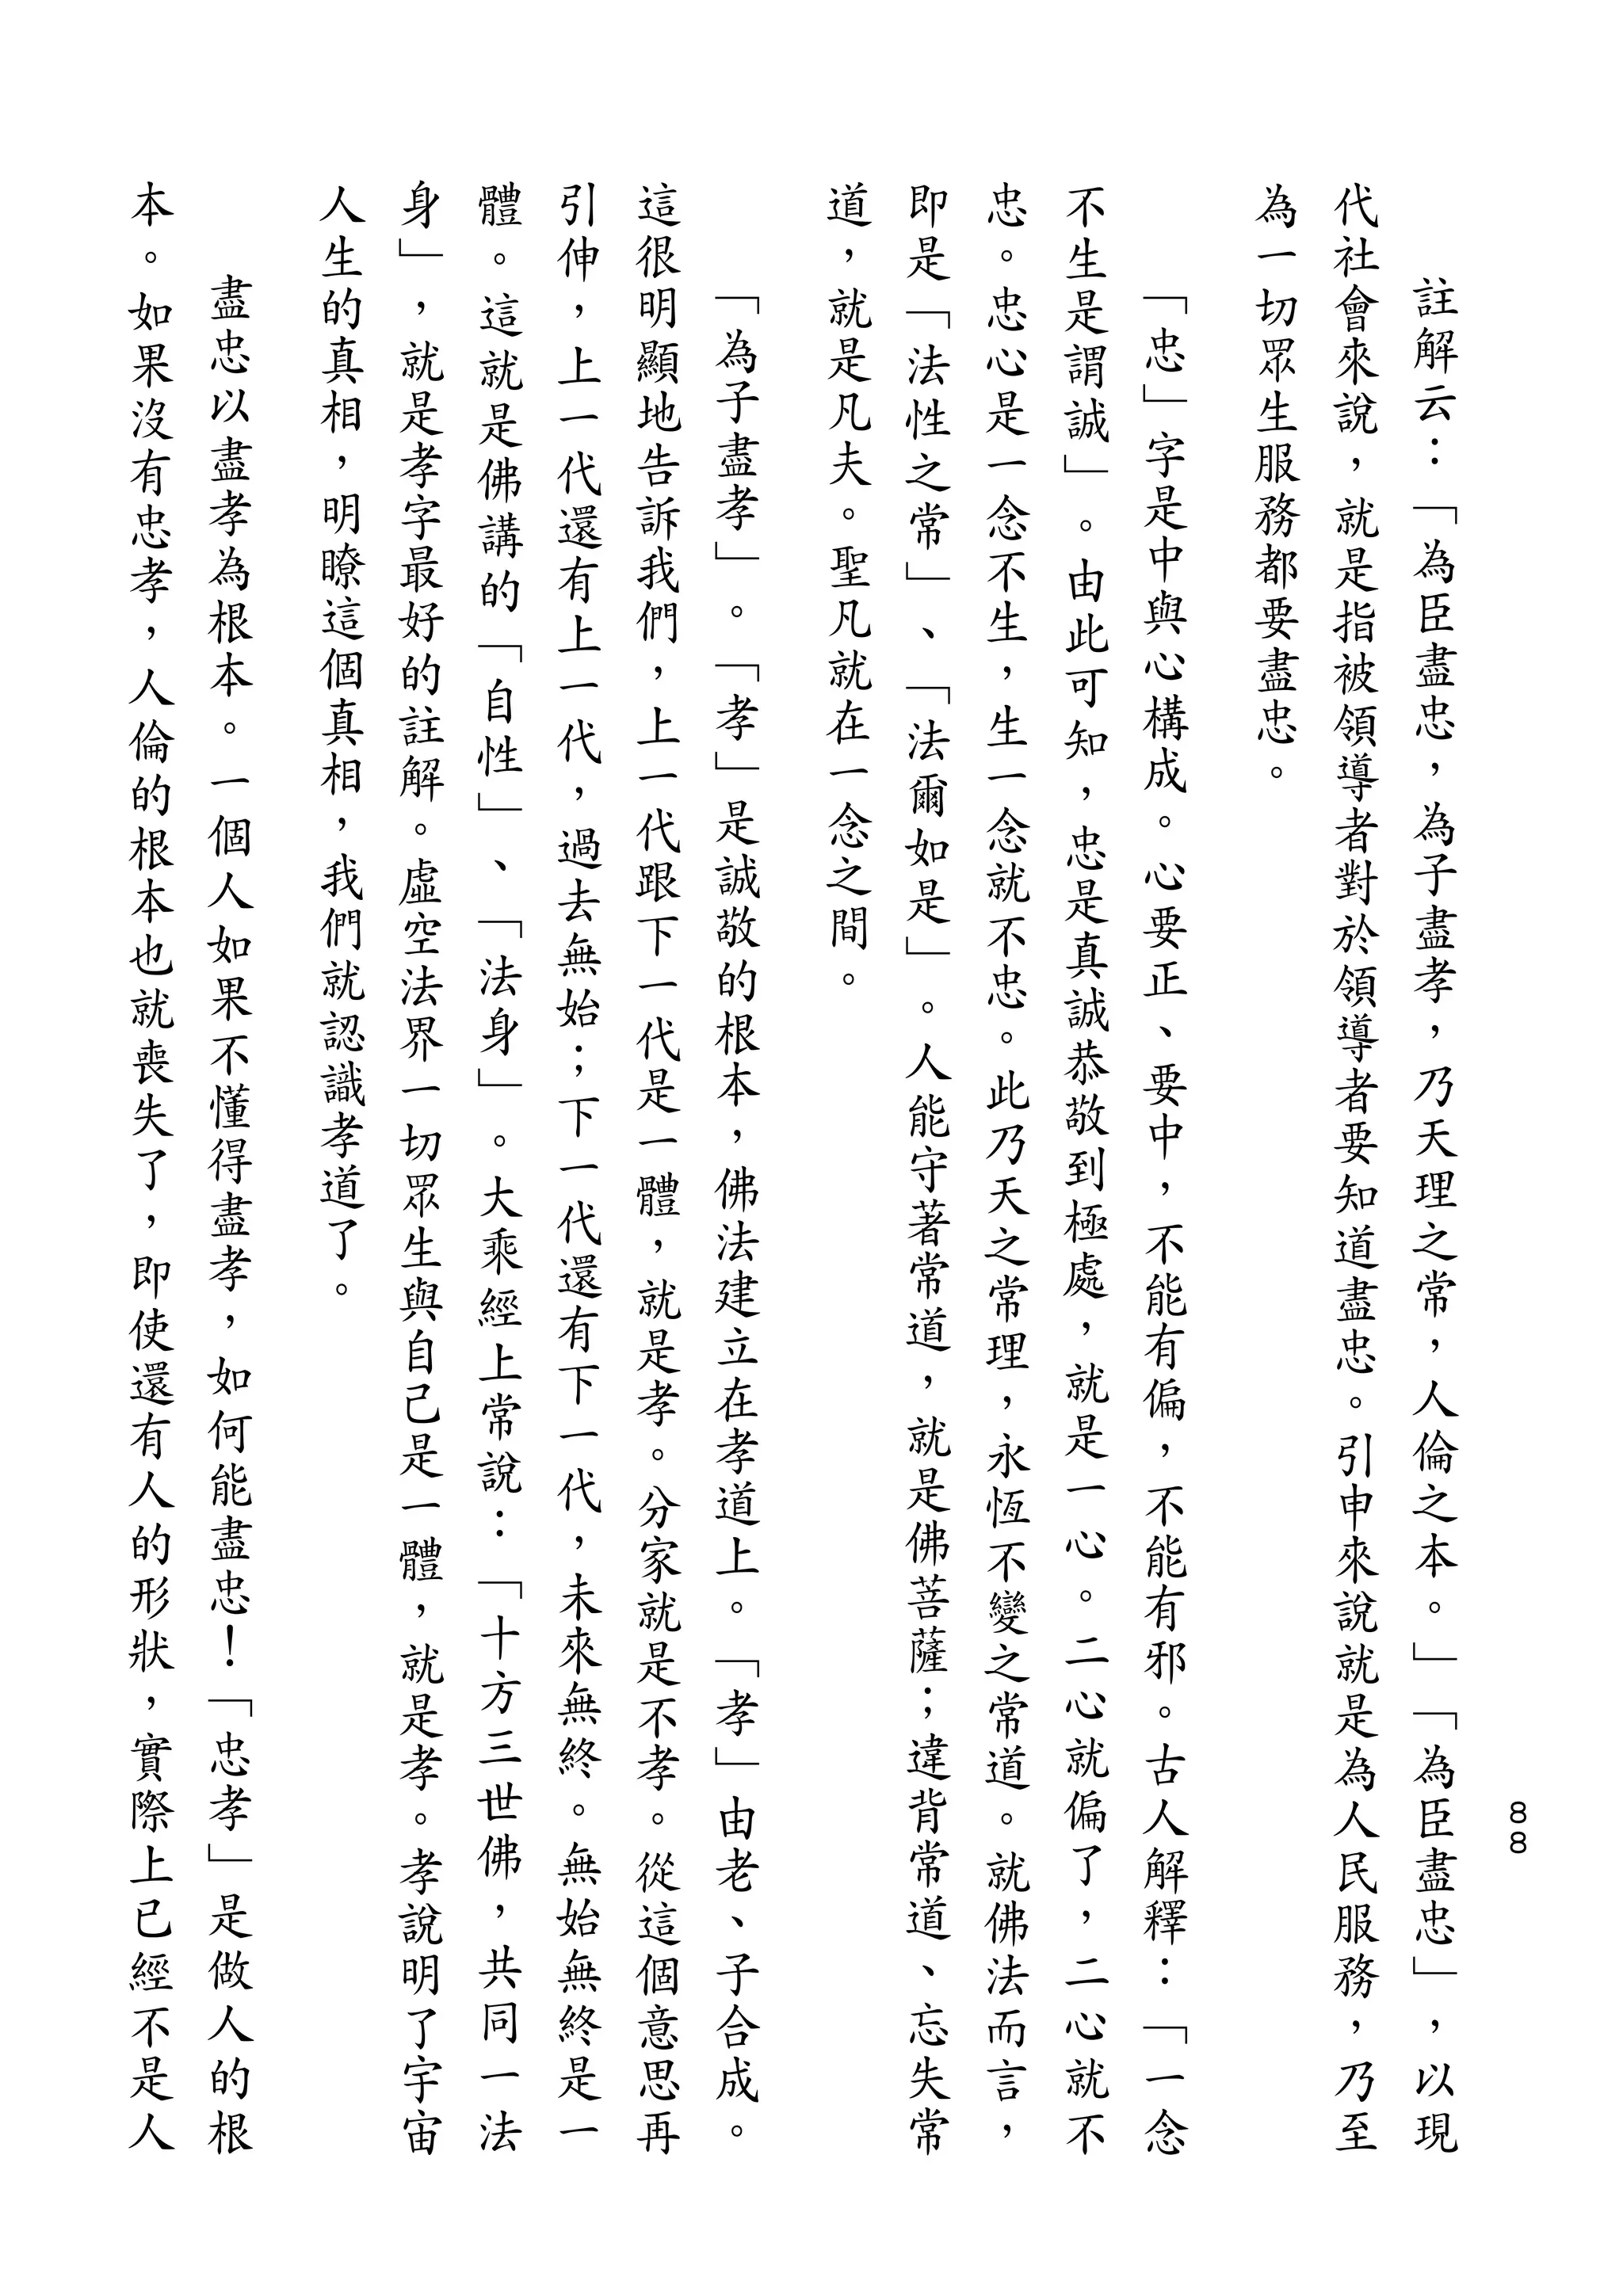 88
註解云：「為臣盡忠，為子盡孝，乃天理之常，人倫之本。」「為臣盡忠」，以現
代社會來說，就是指被領導者對於領導者要知道盡忠。引申來說就是為人民服務，乃至
為一切眾生服務都要盡忠。
「忠」字是中與心構成。心要正、要中，不能有偏，不能有邪。古人解釋：「一念
不生是謂誠」。由此可知，忠是真誠恭敬到極處，就是一心。二心就偏了，二心就不
忠。忠心是一念不生，生一念就不忠。此乃天之常理，永恆不變之常道。就佛法而言，
即是「法性之常」、「法爾如是」。人能守著常道，就是佛菩薩；違背常道、忘失常
道，就是凡夫。聖凡就在一念之間。
「為子盡孝」。「孝」是誠敬的根本，佛法建立在孝道上。「孝」由老、子合成。
這很明顯地告訴我們，上一代跟下一代是一體，就是孝。分家就是不孝。從這個意思再
引伸，上一代還有上一代，過去無始；下一代還有下一代，未來無終。無始無終是一
體。這就是佛講的「自性」、「法身」。大乘經上常說：「十方三世佛，共同一法
身」，就是孝字最好的註解。虛空法界一切眾生與自己是一體，就是孝。孝說明了宇宙
人生的真相，明瞭這個真相，我們就認識孝道了。
盡忠以盡孝為根本。一個人如果不懂得盡孝，如何能盡忠！「忠孝」是做人的根
本。如果沒有忠孝，人倫的根本也就喪失了，即使還有人的形狀，實際上已經不是人